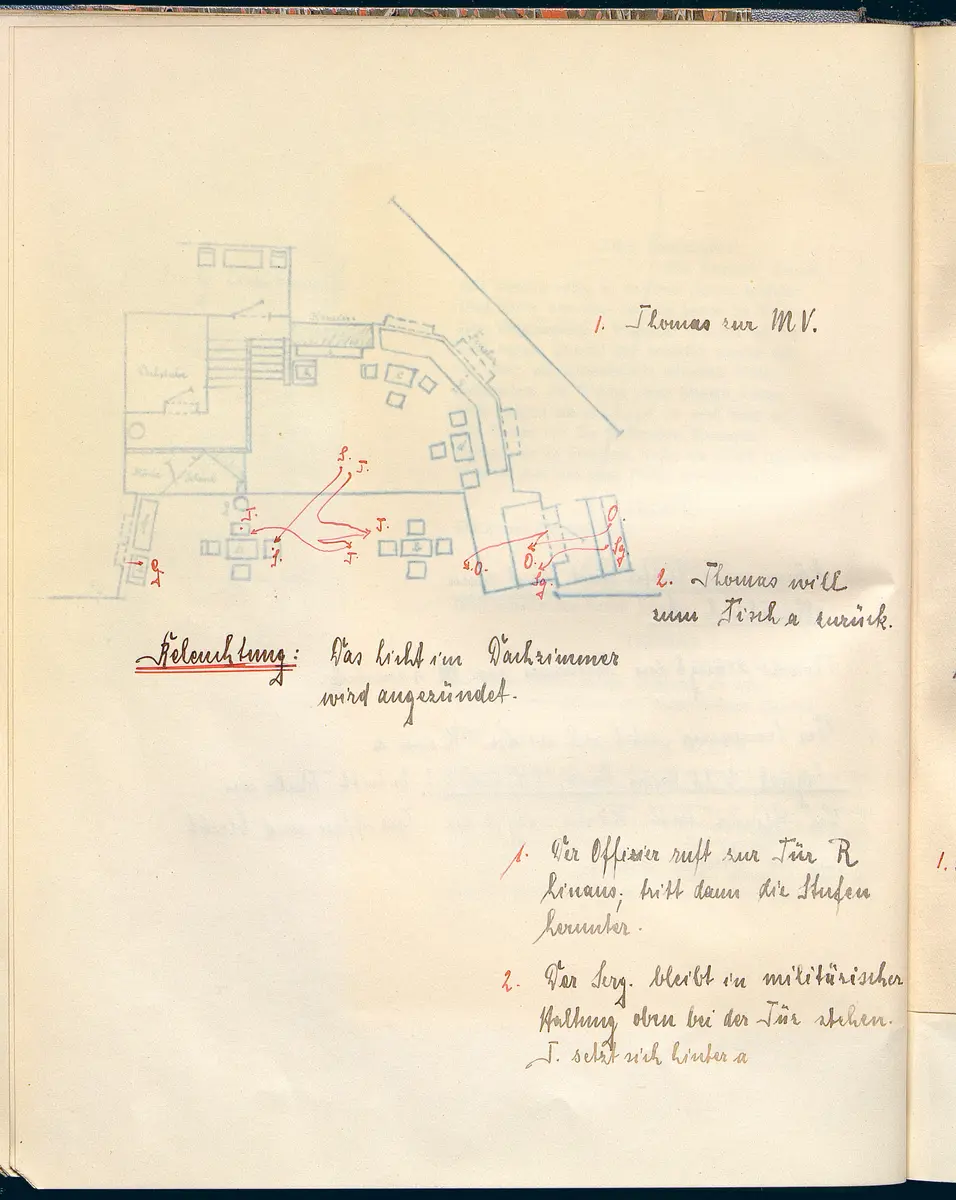 1. Thomas zur MV.
S.
T.
T.
T.
S.
T.
O.
O.
O.
Sg.
Sg
2. Thomas will
zum Tisch a zurück.
Beleuchtung: Das Licht im Dachzimmer
wird angezündet.
1. Der Offizier ruft zur Tür R
hinaus; tritt dann die Stufen
herunter.
2. Der Serg. bleibt in militärischer
Haltung oben bei der Tür stehen.
T. setzt sich hinter a
1.